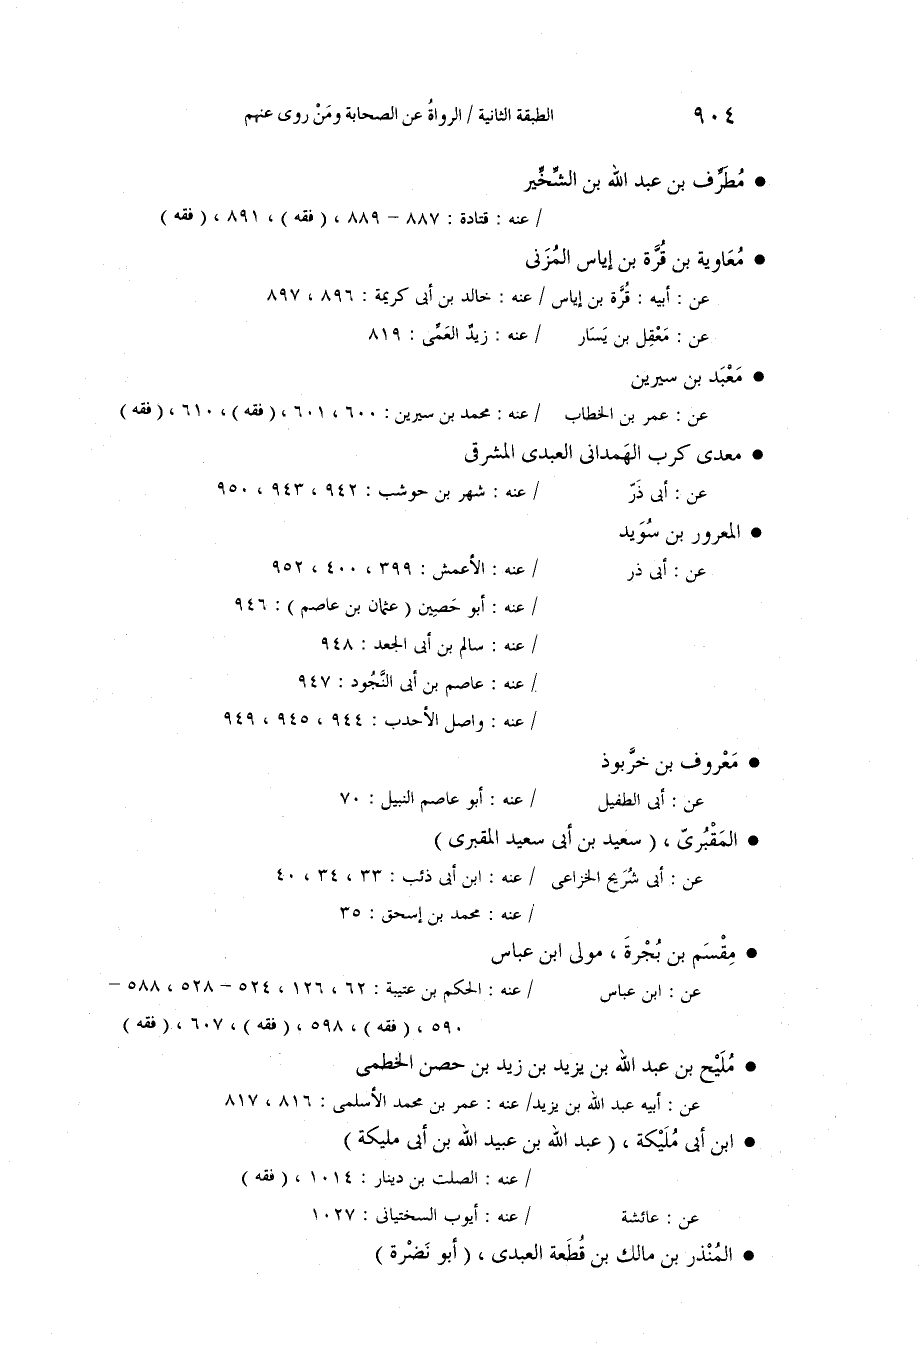 ٩٠٤ الطبقة الثانية / الرواةُ عن الصحابة ومَنْ روى عنهم
● مُطَرِّف بن عبد الله بن الشِّخِّير
/ عنه : قتادة : ٨٨٧ – ٨٨٩ ، ( فقه ) ، ٨٩١ ، ( فقه )
● مُعَاوية بن قُرَّة بن إياس المُزَنى
عن : أبيه : قُرَّة بن إياس / عنه : خالد بن أبى كريمة : ٨٩٦ ، ٨٩٧
عن : مَعْقِل بن يَسَار / عنه : زيدٌ العَمِّى : ٨١٩
● مَعْبَد بن سيرين
عن : عمر بن الخطاب / عنه : محمد بن سيرين : ٦٠٠ ، ٦٠١ ، ( فقه ) ، ٦١٠ ، ( فقه )
● معدى كرب الهَمدانى العبدى المشرقى
عن : أبى ذَرّ / عنه : شهر بن حوشب : ٩٤٢ ، ٩٤٣ ، ٩٥٠
● المعرور بن سُوَيد
عن : أبى ذر / عنه : الأعمش : ٣٩٩ ، ٤٠٠ ، ٩٥٢
/ عنه : أبو حَصِين ( عثمان بن عاصم ) : ٩٤٦
/ عنه : سالم بن أبى الجعد : ٩٤٨
/ عنه : عاصم بن أبى النَّجُود : ٩٤٧
/ عنه : واصل الأحدب : ٩٤٤ ، ٩٤٥ ، ٩٤٩
● مَعْروف بن خرَّبوذ
عن : أبى الطفيل / عنه : أبو عاصم النبيل : ٧٠
● المَقْبُرىّ ، ( سعيد بن أبى سعيد المقبرى )
عن : أبى شُرَيح الخزاعى / عنه : ابن أبى ذئب : ٣٣ ، ٣٤ ، ٤٠
/ عنه : محمد بن إسحق : ٣٥
● مِقْسَم بن بُجْرةَ ، مولى ابن عباس
عن : ابن عباس / عنه : الحكم بن عتيبة : ٦٢ ، ١٢٦ ، ٥٢٤ – ٥٢٨ ، ٥٨٨ –
٥٩٠ ، ( فقه ) ، ٥٩٨ ، ( فقه ) ، ٦٠٧ ، ( فقه )
● مُلَيْح بن عبد الله بن يزيد بن زيد بن حصن الخطمى
عن : أبيه عبد الله بن يزيد/ عنه : عمر بن محمد الأسلمى : ٨١٦ ، ٨١٧
● ابن أبى مُلَيْكة ، ( عبد الله بن عبيد الله بن أبى مليكة )
/ عنه : الصلت بن دينار : ١٠١٤ ، ( فقه )
عن : عائشة / عنه : أيوب السختيانى : ١٠٢٧
● المُنْذر بن مالك بن قُطَعة العبدى ، ( أبو نَضْرة )